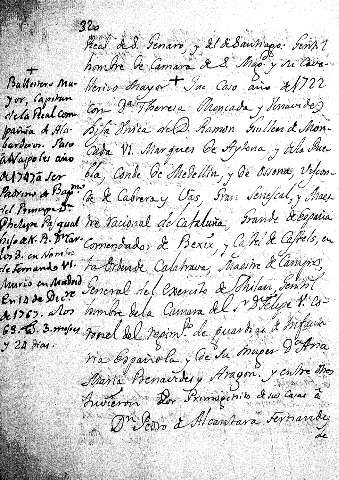 320
Real de S. Genaro, y el de Santiago: Gentil
hombre de Camara de S. Mag.d y su Cava
lerizo mayor + Que Caso año de 1722
con D.a Theresa Moncada, y Benavides
hija Unica de D. Ramon Guillen de Mon
cada VI. Marques de Aytona, y de la Pue
bla, Conde de Medellin, y de Osona, Vizcon
de de Cabrera y Vas, Gran Senescal, y Maes
tre Racional de Cataluña, Grande de España
Comendador de Bexix, y Castel de Castels, en
la Orden de Calatrava, Maestre de Campo
General del Exercito de Milan, Gentil
hombre de la Camara del S.r D. Felipe V. Co
ronel del regim.to de guardias de Infante
ria Española, y de su muger D.a Ana
Maria Benavides y Aragon, y entre otros
tuvieron por Primogenito de sus Casas à
D.n Pedro de Alcantara Fernandez
de
+
Ballestero Ma
yor, Capitan
de la Real Com
pañia de Ala
barderos. Paso
a Napoles año
de 1747 a ser
Padrino de Bap.mo
del Principe D.n
Phelipe Pasqual
hijo de
los 3. en Nombre
de Fernando VI.
Murio en Madrid
En 14 de Dic.re
de 1767. a los
63. 3. meses
y 24 dias.